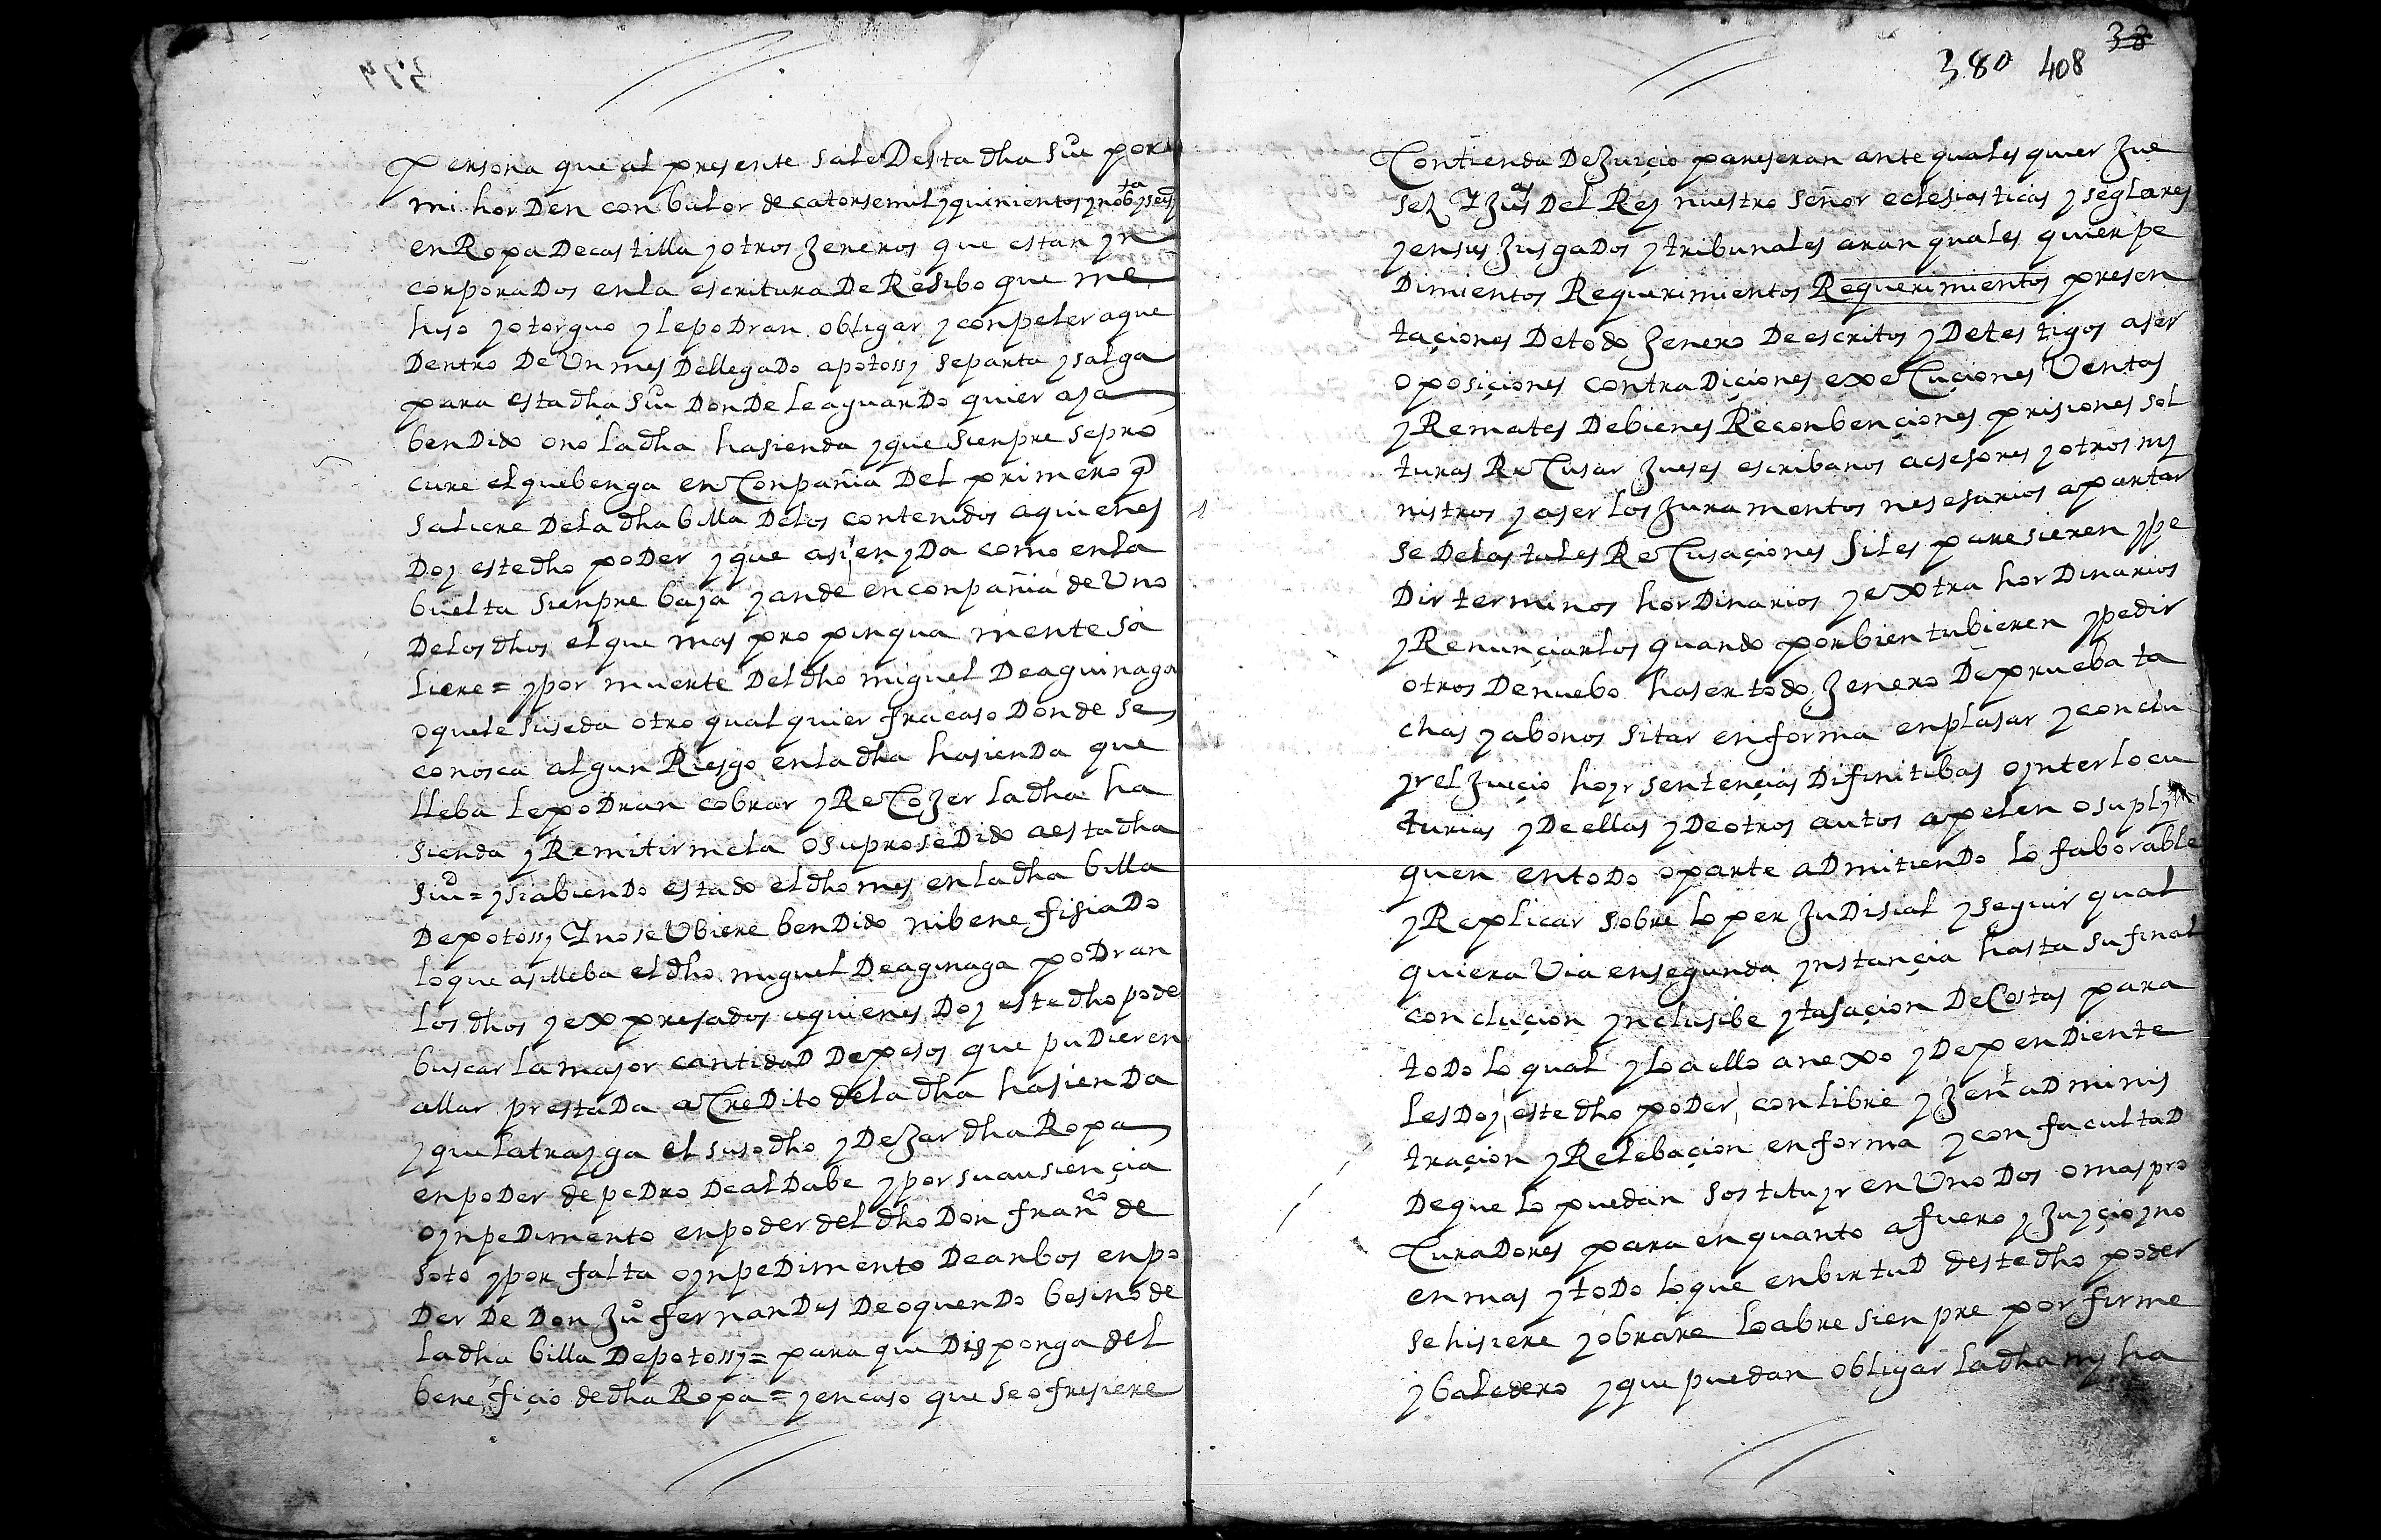 Persona que al presente sale Desta dha Siu por
mi horDen con balor de catorse mil y quinientos y nobta y seis
en Ropa De castilla y otros Jeneros que estan yn
corporaDos en la escritura De Resibo que me
hiso y otorguo y le poDran obligar y conpeler a que
Dentro De Un mes DellegaDo a potossi se parta y salga
para esta dha Siu DonDe le aguarDo quier aya
benDido o no la dha hasienda y que sienpre se pro
cure el que benga en Conpañia Del primero q
saliere De la dha billa De los contenidos a quienes
Doy este dho poDer y que asi en yDa como en la
buelta sienpre baya y ande en conpañia de Uno
De los dhos el que mas propinqua mente sa
liere = y por muerte Del dho miguel De aguinaga
o que le suseda otro qual quier fracaso Donde se
conosca algun Riesgo en la dha hasienDa que
lleba le poDran cobrar y ReCoJer la dha ha
sienda y Remitirmela o su proseDido a esta dha
Siu = y si abienDo estado el dho mes en la dha billa
De potossi Y no se Ubiere benDido ni benefisiaDo
lo que asi lleba el dho miguel De aginaga poDran
los dhos y expresados a quienes Doy este dho poder
buscar la mayor cantidaD De pesos que puDieren
allar prestaDa a CreDito de la dha hasienDa
y que la trayga el susodho y DeJar dha Ropa
en poDer de peDro De alDabe y por su ausiençia
o ynpeDimento en poder del dho Don franco de
soto y por falta o ynpeDimento De anbos en po
Der De Don Juo fernanDes De oquenDo besino de
la dha billa De potossi = para que Disponga del
benefiçio de dha Ropa = y en caso que se ofresiere
380 408 38
Contienda De Juiçio pareseran ante quales quier Jue
ses Y Juas Del Rey nuestro Señor eclesiasticas y seglares
y en sus JusgaDos y tribunales aran quales quier pe
Dimientos Requerimientos Requerimientos presen
taçiones De todo Jenero De escritos y De testigos aser
oposiçiones contraDiçiones exeCuçiones Ventas
y Remates De bienes Reconbençiones prisiones sol
turas ReCusar Jueses escribanos acsesores y otros my
nistros y aser los Juramentos nesesarios apartar
se De las tales ReCusaçiones si les paresieren y pe
Dir terminos horDinarios y extra horDinarios
y Renunçiarlos quando por bien tubieren y pedir
otros De nuebo haser todo Jenero De prueba ta
chas y abonos sitar en forma enplasar y conclu
yr el Juiçio hoyr sentençias Difinitibas o ynterlocu
turias y De ellas y De otros autos apelen o suply
quen en toDo o parte aDmitienDo lo faborable
y Replicar sobre lo perJuDisial y seguir qual
quiera Via en segunda ynstançia hasta su final
concluçion ynclusibe y tasaçion De Costas para
toDo lo qual y lo a ello anexo y DepenDiente
les Doy este dho poDer con libre y Jenl aDminis
traçion y Relebaçion en forma y con facultaD
De que lo puedan sostituyr en Uno Dos o mas pro
CuraDores para en quanto a fuero y Juyçio y no
en mas y toDo lo que en birtuD deste dho poder
se hisiere y obrare lo abre sienpre por firme
y baledero y que puedan obligar la dha my ha